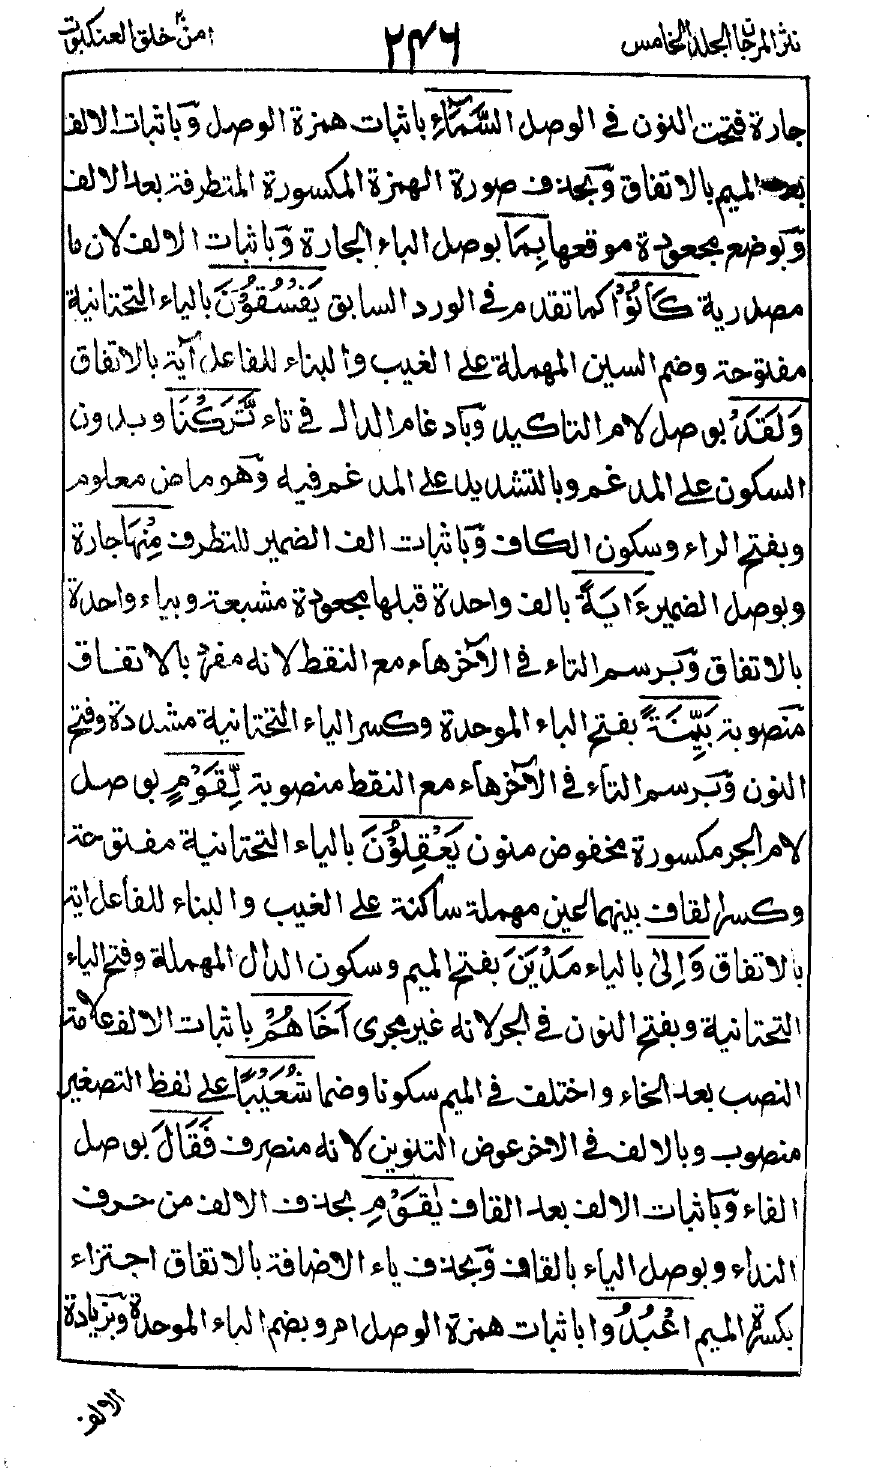 نثر المرجان الجلد الخامس
٢٤٦
امن خلق العنكبوت
جارة فتحت النون في الوصل السَّمَاءِ باثبات همزة الوصل وباثبات الالف
بعد الميم بالاتفاق وبحذف صورة الهمزة المكسورة المتطرفة بعد الالف
وبوضع مجعودة موقعها بِمَا بوصل الباء الجارة وباثبات الالف لان ما
مصدرية كَانُوْا كما تقدم في الورد السابق يَفْسُقُوْنَ بالياء التحتانية
مفتوحة وضم السين المهملة على الغيب والبناء للفاعل آية بالاتفاق
وَلَقَدْ بوصل لام التاكيد وبادغام الدال في تاء تَّرَكْنَا وبدون
السكون على المدغم وبالتشديد على المدغم فيه وهو ماض معلوم
وبفتح الراء وسكون الكاف وباثبات الف الضمير للتطرف مِنْهَا جارة
وبوصل الضمير ءَايَةً بالف واحدة قبلها مجعودة مشبعة وبياء واحدة
بالاتفاق وبرسم التاء في الآخر هاء مع النقط لانه مفرد بالاتفاق
منصوبة بَيِّنَةً بفتح الباء الموحدة وكسر الياء التحتانية مشددة وفتح
النون وبرسم التاء في الآخر هاء مع النقط منصوبة لِّقَوْمٍ بوصل
لام الجر مكسورة مخفوض منون يَعْقِلُوْنَ بالياء التحتانية مفتوحة
وكسر القاف بينهما عين مهملة ساكنة على الغيب والبناء للفاعل اية
بالاتفاق وَاِلىٰ بالياء مَدْيَنَ بفتح الميم وسكون الدال المهملة وفتح الياء
التحتانية وبفتح النون في الجر لانه غير مجرى اَخَاهُمْ باثبات الالف علامة
النصب بعد الخاء واختلف في الميم سكونا وضما شُعَيْبًا على لفظ التصغير
منصوب وبالالف في الاخر عوض التنوين لانه منصرف فَقَالَ بوصل
الفاء وباثبات الالف بعد القاف يٰقَوْمِ بحذف الالف من حرف
النداء وبوصل الياء بالقاف وبحذف ياء الاضافة بالاتفاق اجتزاء
بكسرة الميم اعْبُدُوا باثبات همزة الوصل امر وبضم الباء الموحدة وبزيادة
الالف